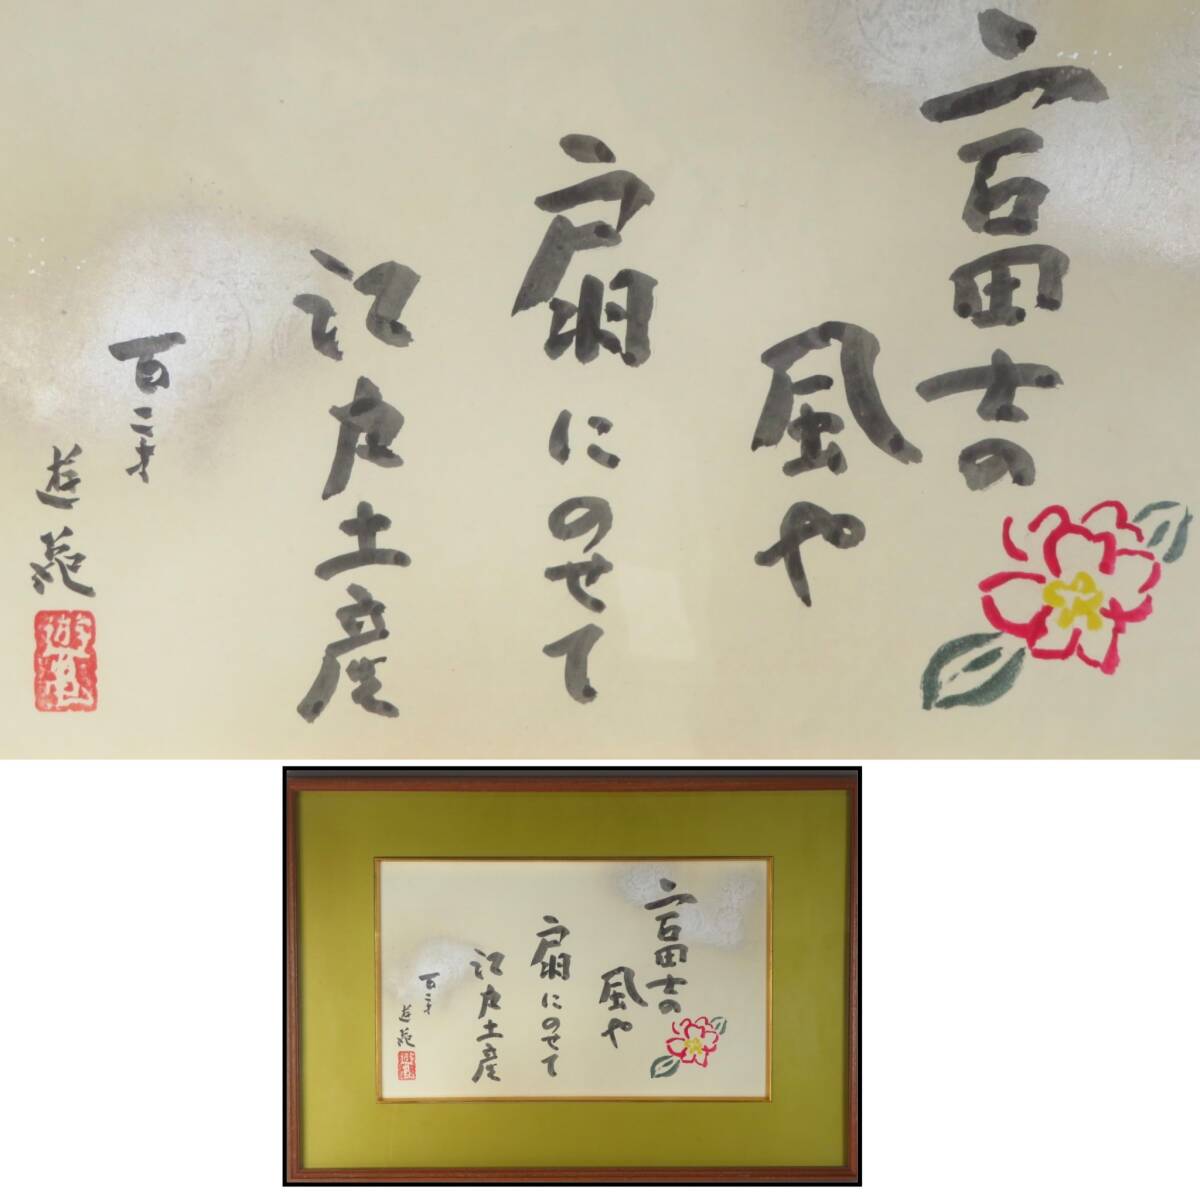 富士の
風や
扇にのせて
江戸土産
百二才
遊亀
遊亀
富士の
風や
扇にのせて
江戸土産
百二才
遊亀
遊亀